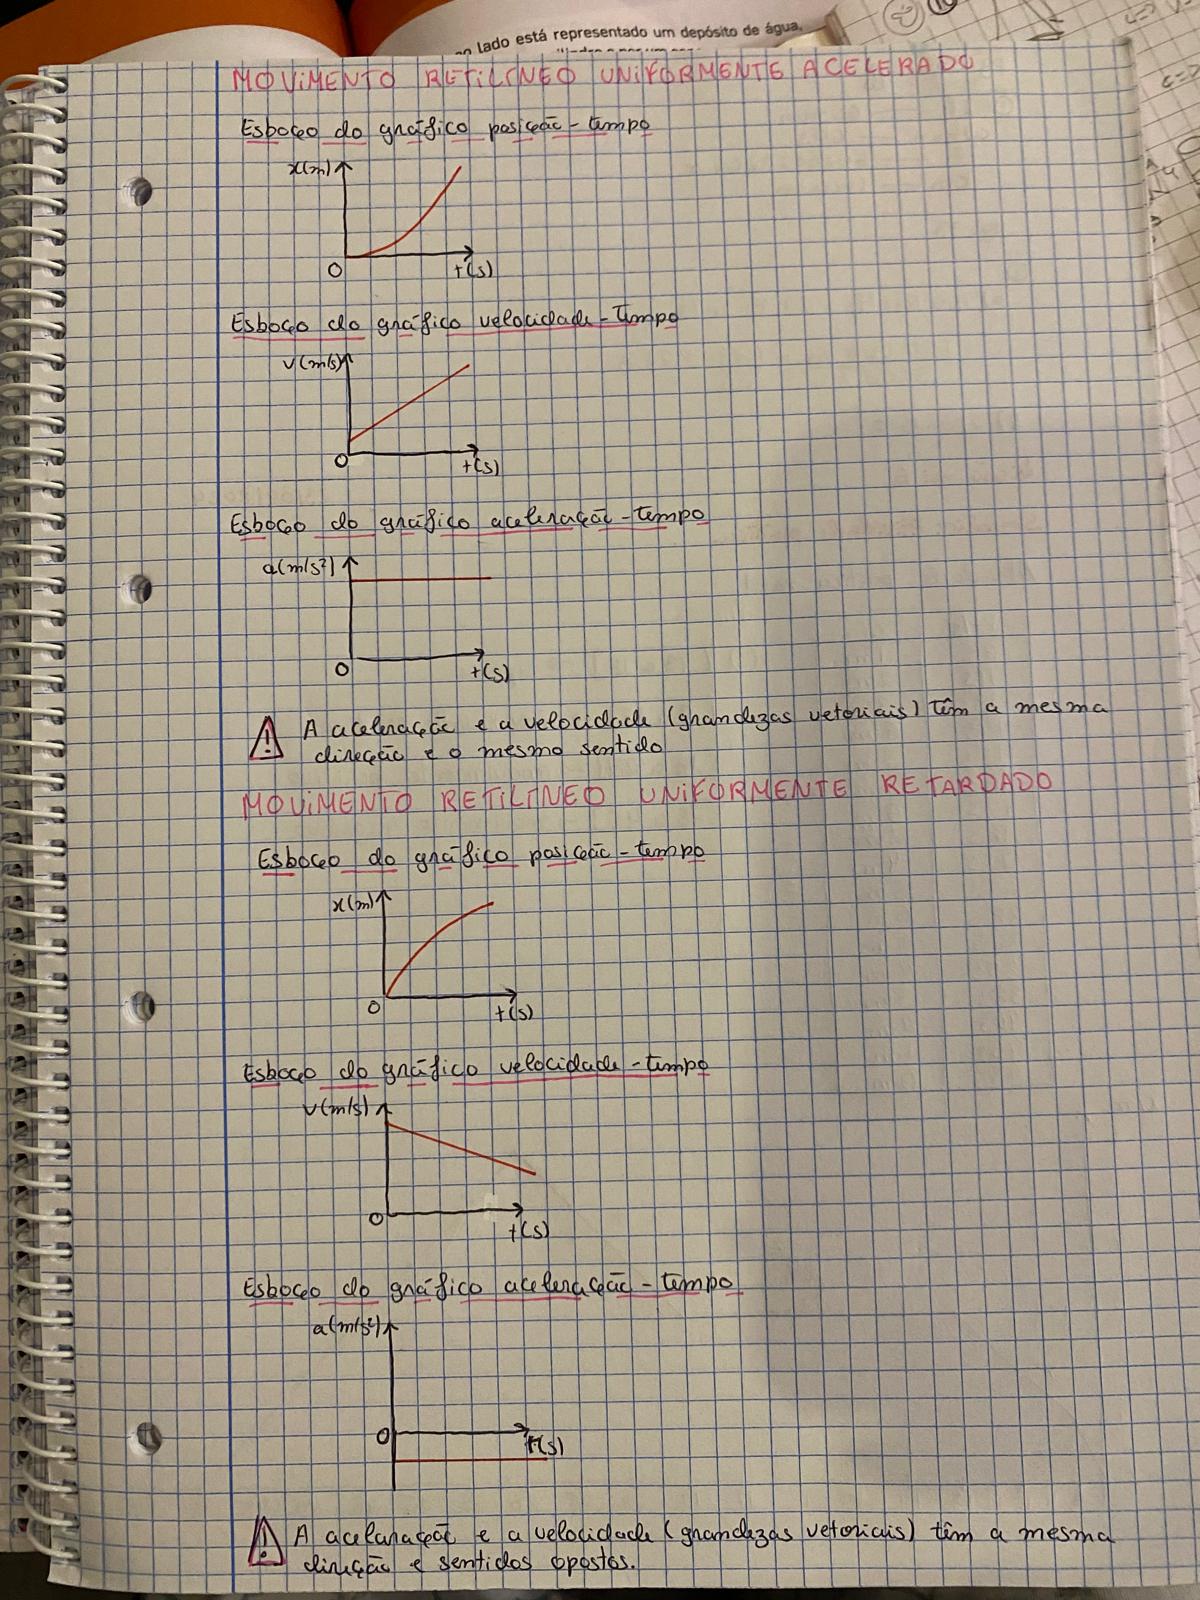 lado está representado um depósito de água,
MOVIMENTO RETILÍNEO UNIFORMENTE ACELERADO
Esboço do gráfico posição-tempo
x(m)
0
t(s)
Esboço do gráfico velocidade-tempo
v(m/s)
0
t(s)
Esboço do gráfico aceleração-tempo
a(m/s²)
0
t(s)
A aceleração e a velocidade (grandezas vetoriais) têm a mesma
direção e o mesmo sentido
MOVIMENTO RETILÍNEO UNIFORMENTE RETARDADO
Esboço do gráfico posição-tempo
x(m)
0
t(s)
Esboço do gráfico velocidade-tempo
v(m/s)
0
t(s)
Esboço do gráfico aceleração-tempo
a(m/s²)
0
t(s)
A acelaração e a velocidade (grandezas vetoriais) têm a mesma
direção e sentidos opostos.